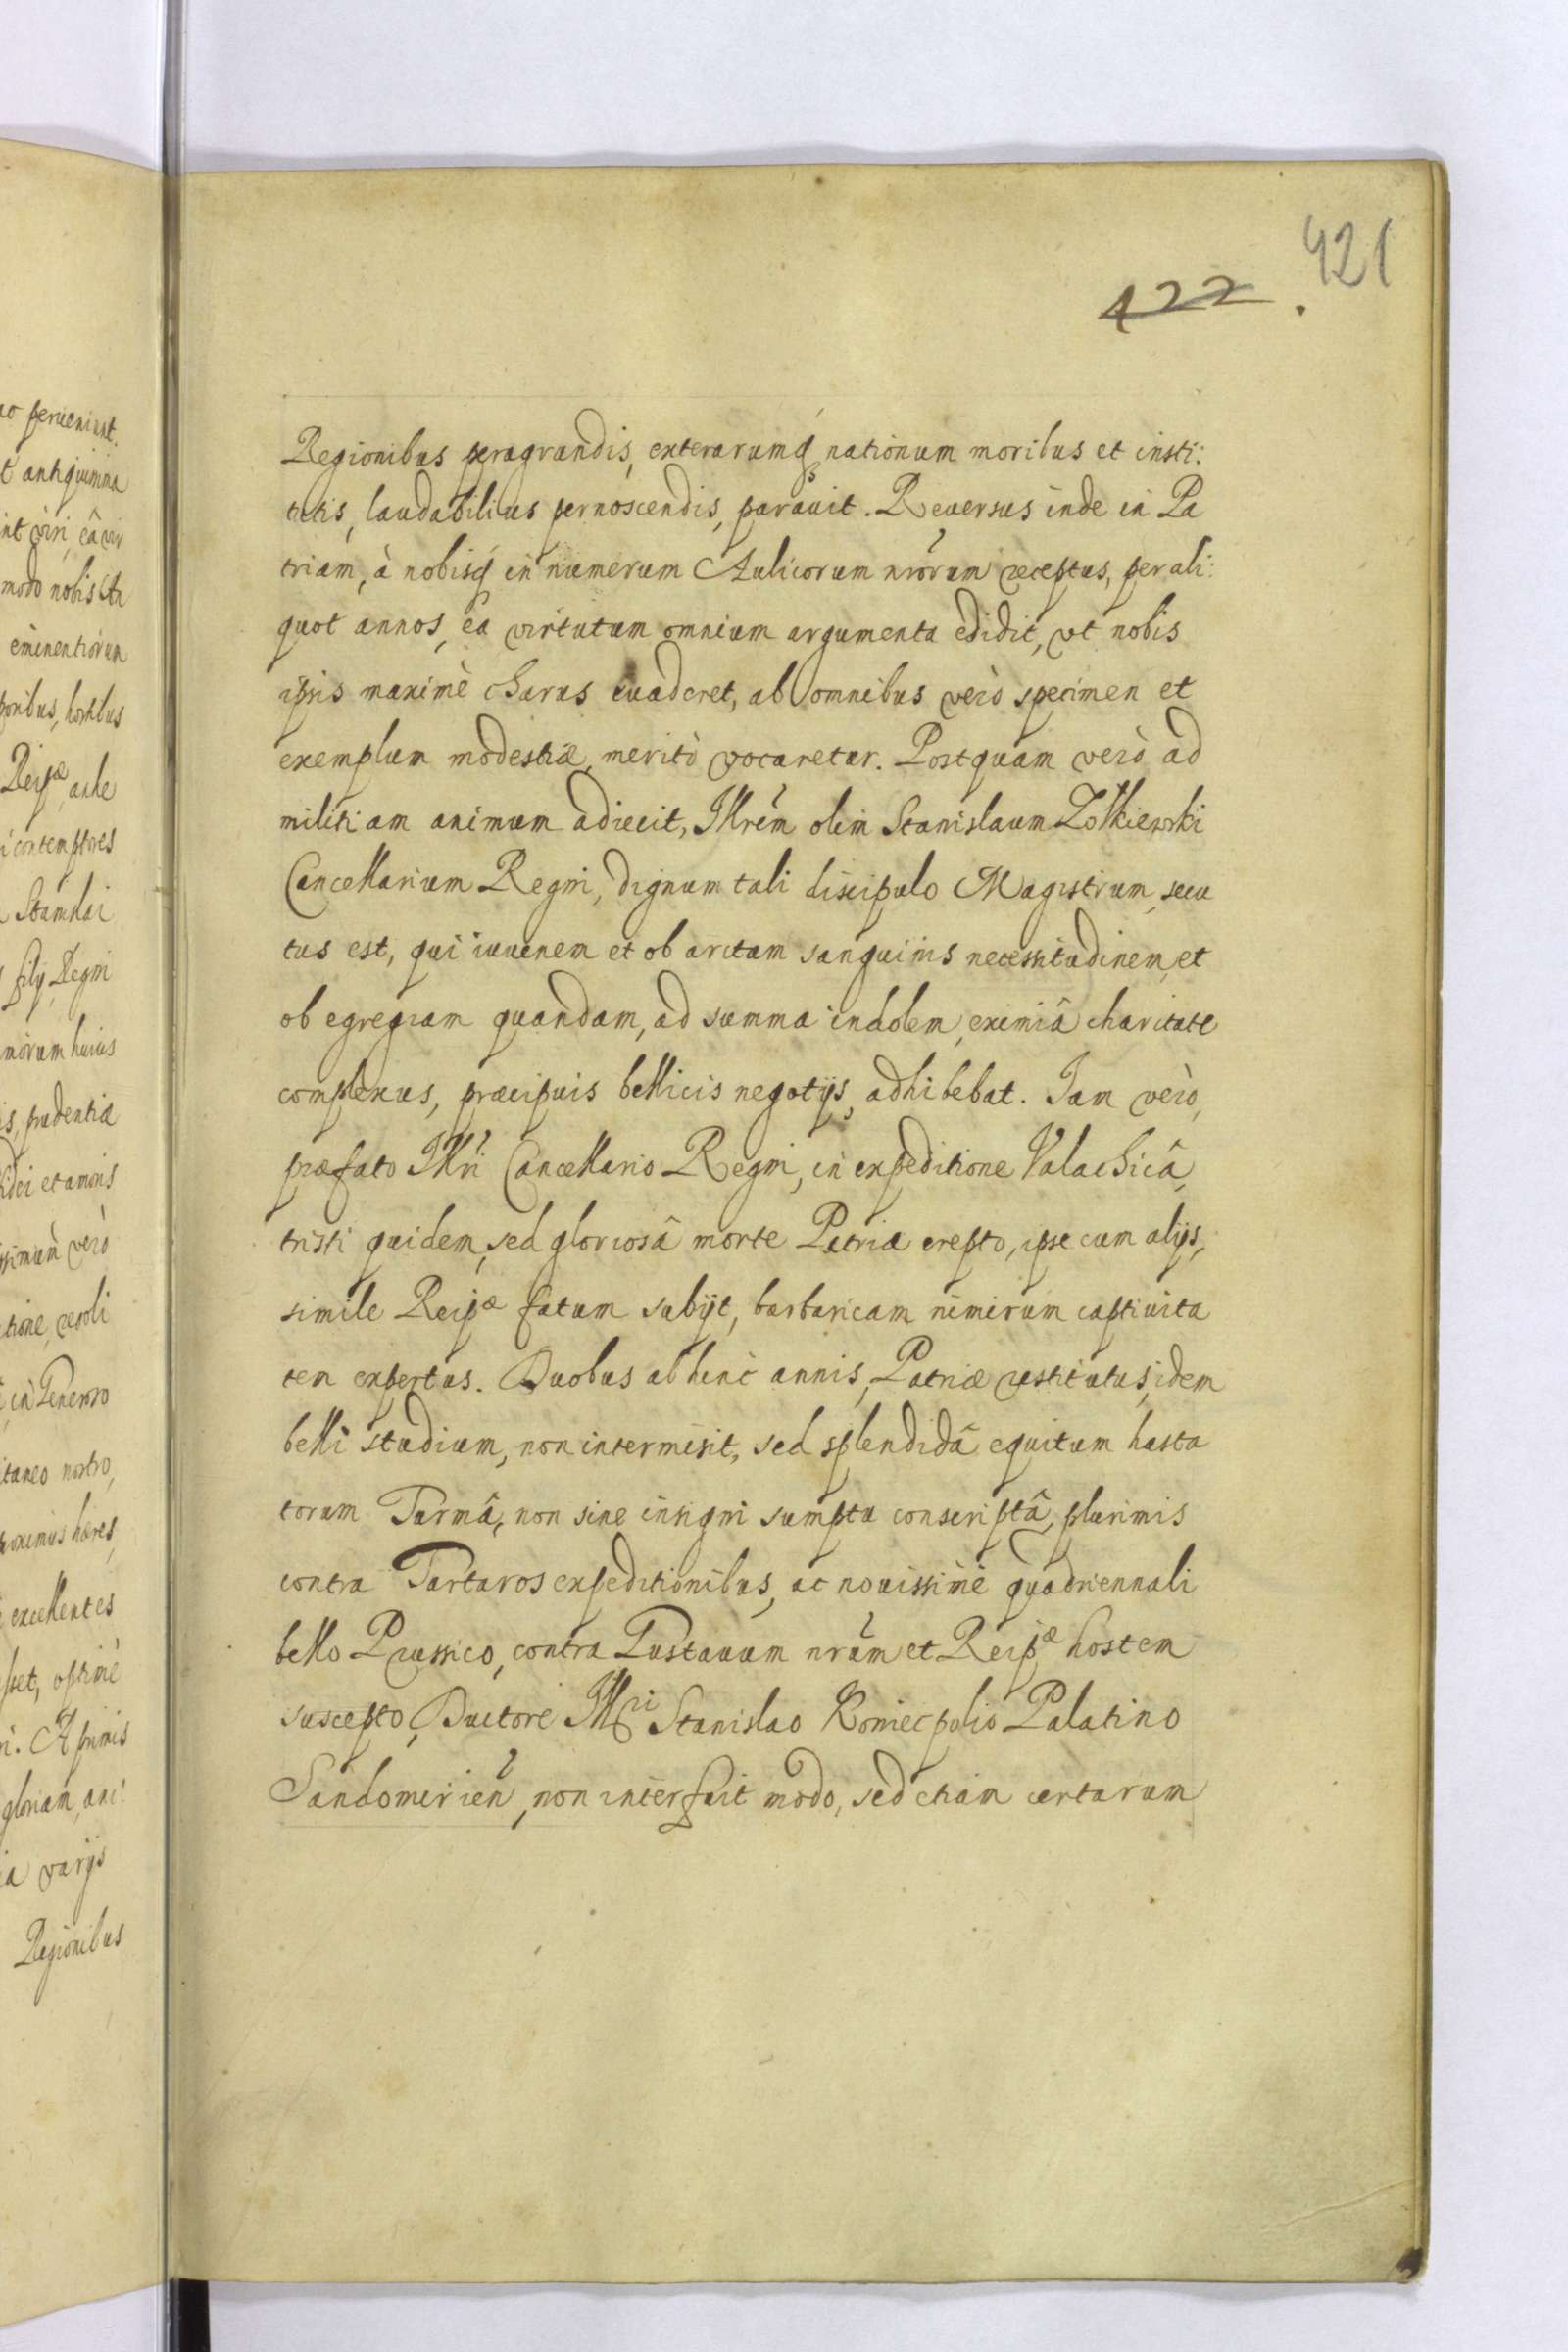 421
422.
Regionibus peragrandis, exterarumq nationum moribus et insti:
tutis, laudabilius pernoscendis, parauit. Reuersus inde in Pa
triam, à nobisq in numerum Aulicorum nrorum receptus, per ali:
quot annos, ea virtutum omnium argumenta edidit, vt nobis
ipsis maximè charus euaderet, ab omnibus verò specimen et
exemplum modestiæ, meritò vocaretur. Postquam verò ad
militiam animum adiecit, Illrem olim Stanislaum Zołkiewski
Cancellarium Regni, dignum tali discipulo Magistrum, secu
tus est, qui iuuenem et ob arctam sanguinis necessitudinem, et
ob egregiam quandam, ad summa indolem, eximiâ charitate
complexus, præcipuis bellicis negotijs, adhibebat. Iam verò,
præfato Illri Cancellario Regni, in expeditione Valachicâ,
tristi quidem, sed gloriosâ morte Patriæ erepto, ipse cum alijs,
simile Reipæ fatum subijt, barbaricam nimirum captiuita
tem expertus. Duobus ab hinc annis, Patriæ restitutus, idem
belli studium, non intermisit, sed splendidâ equitum hasta
torum Turmâ, non sine insigni sumptu conscriptâ, plurimis
contra Tartaros expeditionibus, ac nouissimè quadriennali
bello Prussico, contra Gustauum nrum et Reipæ hostem
suscepto, Ductore Illri Stanislao Koniecpolio Palatino
Sandomirien, non interfuit modo, sed etiam certarum